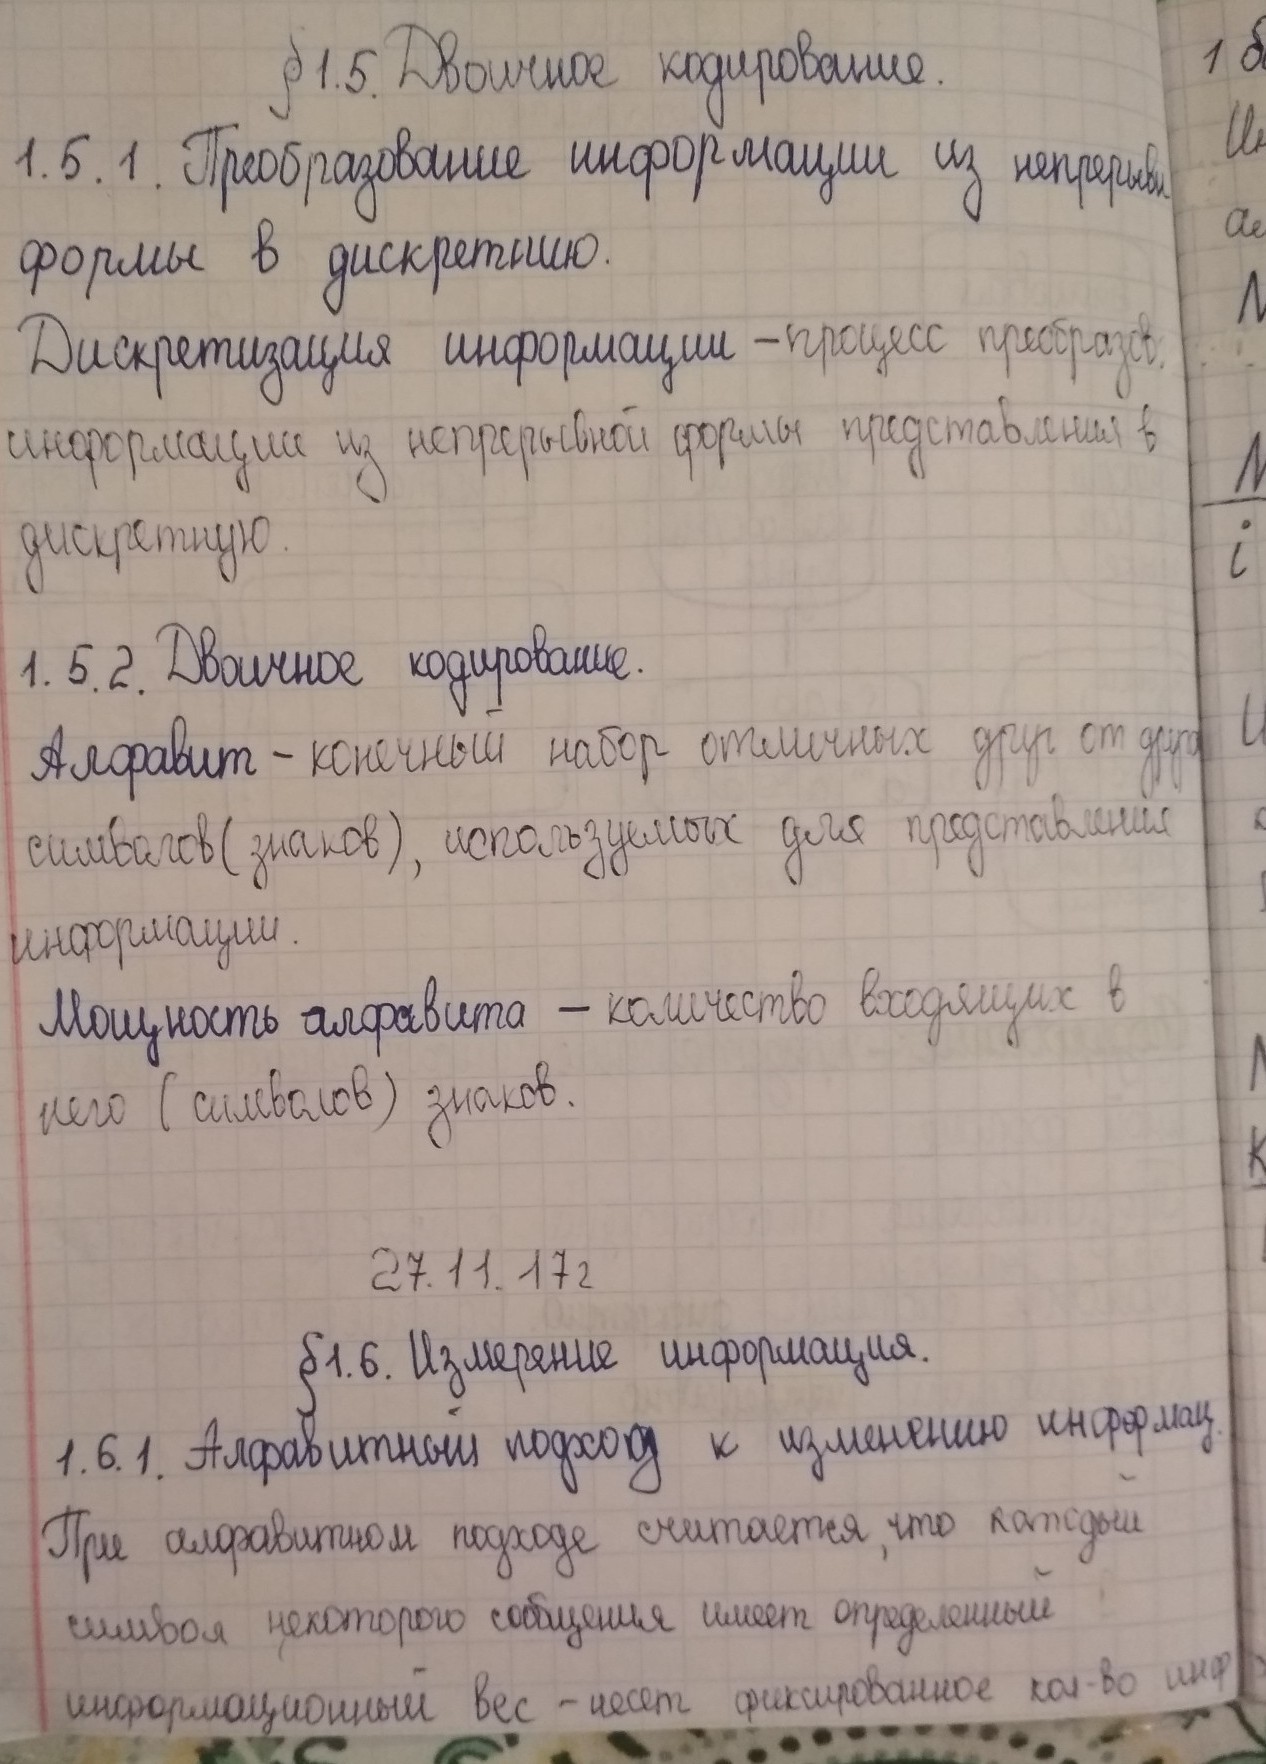 §1.5. Двоичное кодирование.
1.5.1. Преобразование информации из непрерывн
формы в дискретную.
Дискретизация информации – процесс преобразов.
информации из непрерывной формы представления в
дискретную.
1.5.2. Двоичное кодирование.
Алфавит – конечный набор отличных друг от друга
символов (знаков), используемых для представления
информации.
Мощность алфавита – количество входящих в
него (символов) знаков.
27.11.17г
§1.6. Измерение информация.
1.6.1. Алфавитный подход к изменению информац.
При алфавитном подходе считается, что каждый
символ некоторого сообщения имеет определенный
информационный вес – несет фиксированное кол-во инф